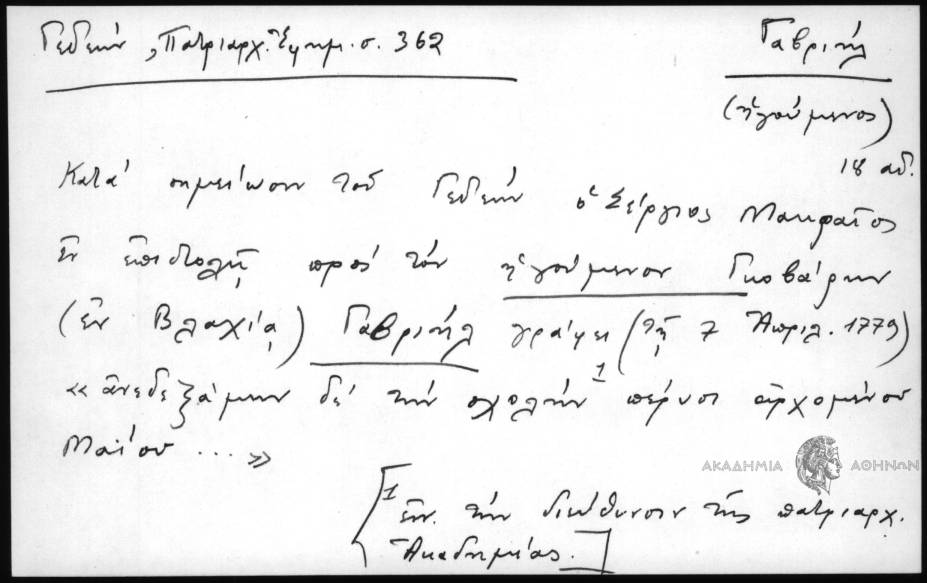 Γεδεών „Πατριαρχ. Ἐφημ. σ. 362
Γαβριήλ
(ἡγούμενος)
18 αἰ.
Κατά σημείωσιν τοῦ Γεδεών ὁ Σέργιος Μακραῖος
ἐν ἐπιστολῇ πρός τόν ἡγούμενον
(ἐν Βλαχίᾳ) Γαβριήλ γράφει (τῇ 7 Ἀπριλ. 1779)
«ἀνεδεξάμην δέ τήν σχολήν 1 πέρυσι ἀρχομένου
Μαΐου ... »
ΑΚΑΔΗΜΙΑ ΑΘΗΝΩΝ
[1 ἐν. τήν διεύθυνσιν τῆς πατριαρχ.
Ἀκαδημίας.]